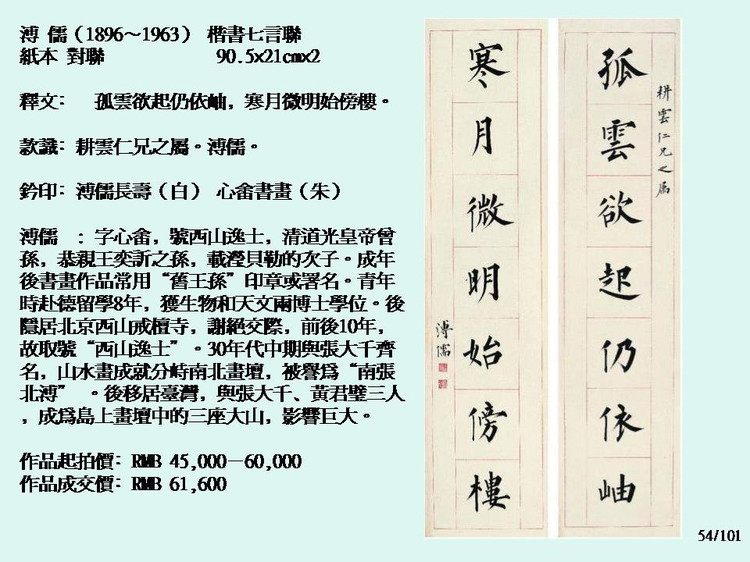 溥 儒（1896～1963） 楷書七言聯
紙本 對聯 90.5x21cmx2
釋文： 孤雲欲起仍依岫，寒月微明始傍樓。
款識：耕雲仁兄之屬。溥儒。
鈐印：溥儒長壽（白） 心畬書畫（朱）
溥儒 ：字心畬，號西山逸士，清道光皇帝曾
孫，恭親王奕訢之孫，載瀅貝勒的次子。成年
後書畫作品常用“舊王孫”印章或署名。青年
時赴德留學8年，獲生物和天文兩博士學位。後
隱居北京西山戒檀寺，謝絕交際，前後10年，
故取號“西山逸士”。30年代中期與張大千齊
名，山水畫成就分峙南北畫壇，被譽爲“南張
北溥” 。後移居臺灣，與張大千、黃君璧三人
，成爲島上畫壇中的三座大山，影響巨大。
作品起拍價：RMB 45,000—60,000
作品成交價：RMB 61,600
孤雲欲起仍依岫
耕雲仁兄之屬
寒月微明始傍樓
溥儒
54/101